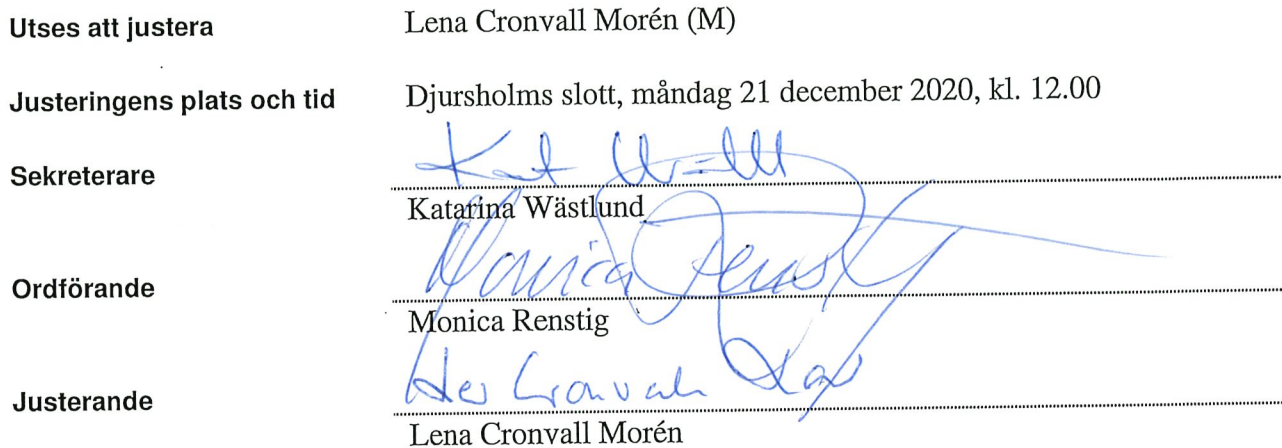 Utses att justera Lena Cronvall Morén (M)
Justeringens plats och tid Djursholms slott, måndag 21 december 2020, kl. 12.00
Sekreterare
Katarina Wästlund
Monica Renstig
Ordförande
Monica Renstig
Cronvall
Justerande
Lena Cronvall Morén